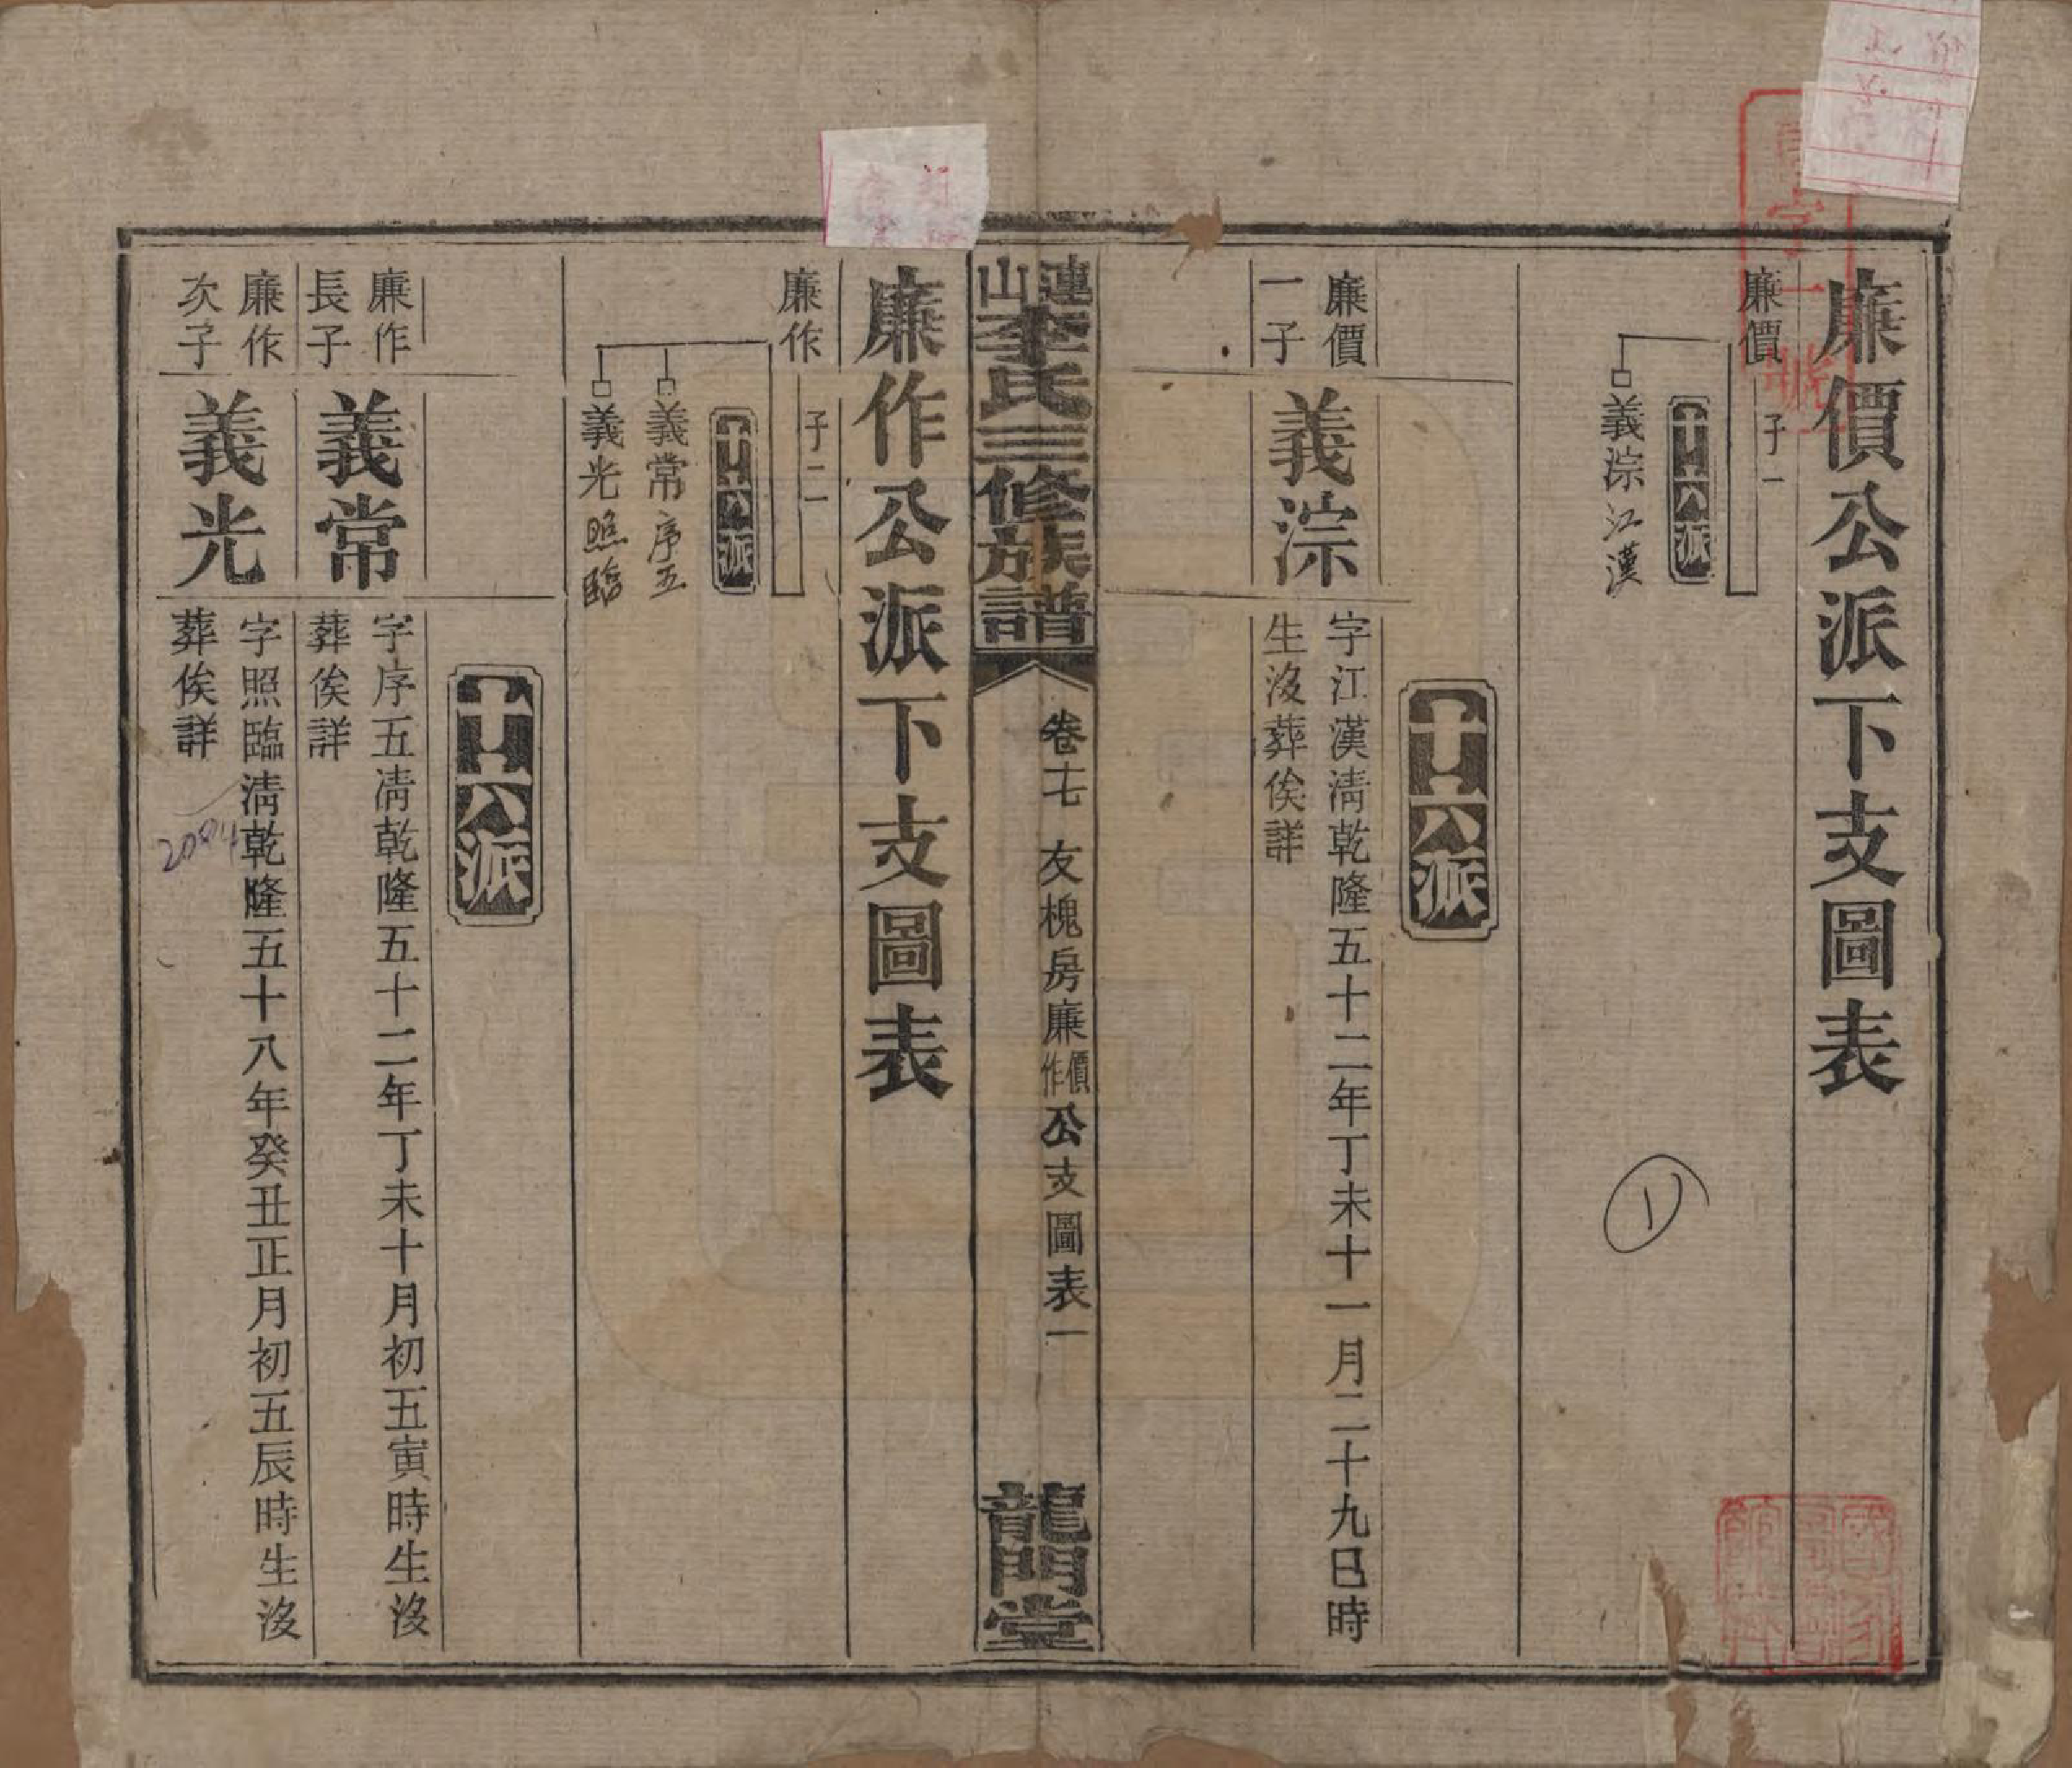 廉價公派下支圖表
廉價
子一
十六派
義淙江漢
十六派
廉價
一子
義淙
字江漢清乾隆五十二年丁未十一月二十九巳時
生沒葬俟詳
連山李氏三修族譜
卷十七 友槐房廉價作公支圖表一
龍門堂
廉作公派下支圖表
廉作
子二
十六派
義常序五
義光照臨
十六派
廉作
長子
義常
字序五清乾隆五十二年丁未十月初五寅時生沒
葬俟詳
廉作
次子
義光
字照臨清乾隆五十八年癸丑正月初五辰時生沒
葬俟詳
1